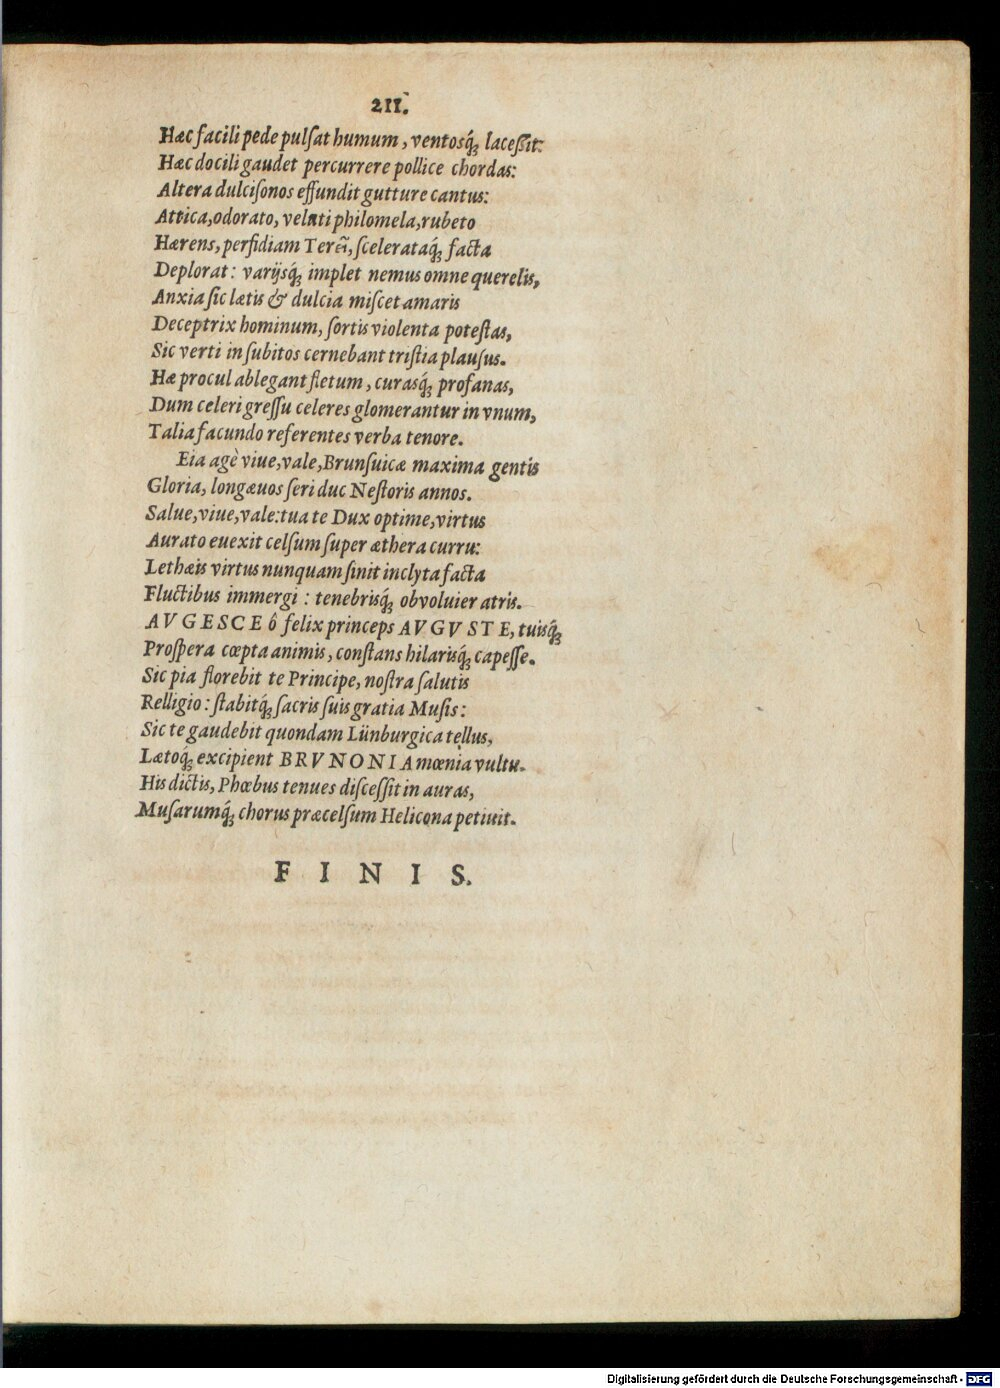 211.
Hæc facili pede pulſat humum, ventosq́; laceßit:
Hæc docili gaudet percurrere pollice chordas:
Altera dulciſonos effundit gutture cantus:
Attica, odorato, veluti philomela, rubeto
Hærens, perfidiam ſcelerataq́; facta
Deplorat: varijsq́; implet nemus omne querelis,
Anxia ſic lætis & dulcia miſcet amaris
Deceptrix hominum, ſortis violenta poteſtas,
Sic verti in ſubitos cernebant triſtia plauſus.
Hæ procul ablegant fletum, curasq́; profanas,
Dum celeri greſſu celeres glomerantur in vnum,
Talia facundo referentes verba tenore.
Eia agè viue, vale, Brunſuicæ maxima gentis
Gloria, longæuos ſeri duc Neſtoris annos.
Salue, viue, vale: tua te Dux optime, virtus
Aurato euexit celſum ſuper æthera curru:
Lethæis virtus nunquam ſinit inclyta facta
Fluctibus immergi: tenebrisq́; obvoluier atris.
AVGESCE ô felix princeps AVGVSTE, tuisq́;
Proſpera cœpta animis, conſtans hilarisq́; capeſſe.
Sic pia florebit te Principe, noſtra ſalutis
Relligio: ſtabitq́; ſacris ſuis gratia Muſis:
Sic te gaudebit quondam Lünburgica tellus,
Lætoq́; excipient BRVNONIA mœnia vultu.
His dictis, Phœbus tenues diſceſſit in auras,
Muſarumq́; chorus præcelſum Helicona petiuit.
FINIS.
Digitalisierung gefördert durch die Deutsche Forschungsgemeinschaft - DFG